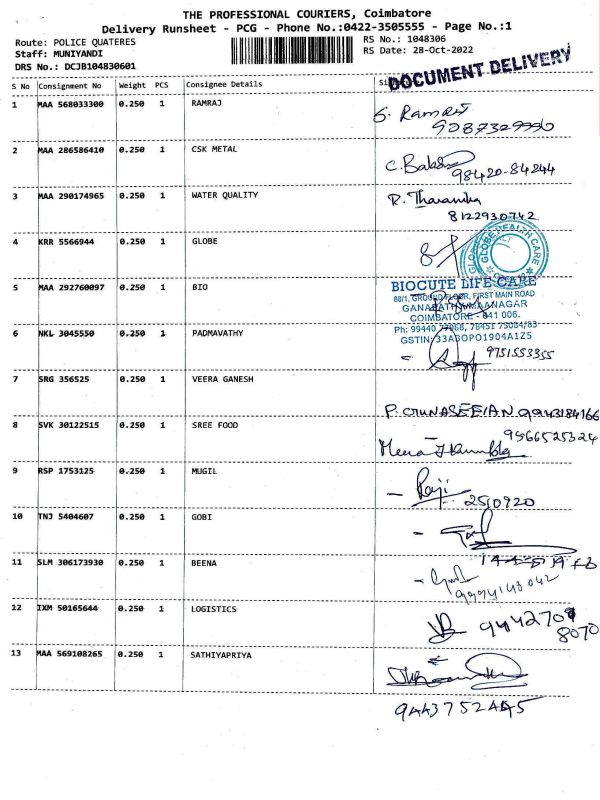 THE PROFESSIONAL COURIERS, Coimbatore
Delivery Runsheet - PCG - Phone No.:0422-3505555 - Page No.:1
Route: POLICE QUATERES
RS No.: 1048306
Staff: MUNIYANDI
RS Date: 28-Oct-2022
DRS No.: DCJB104830601
DOCUMENT DELIVERY
S No Consignment No Weight PCS Consignee Details
1 MAA 568033300 0.250 1 RAMRAJ
S. Ramraj
2 MAA 286586410 0.250 1 CSK METAL
98420-84244
3 MAA 290174965 0.250 1 WATER QUALITY
8122930742
4 KRR 5566944 0.250 1 GLOBE
GLOBE HEALTH CARE
5 MAA 292760097 0.250 1 BIO
BIOCUTE LIFE CARE
88/1, GROUND FLOOR, FIRST MAIN ROAD
COIMBATORE - 641 006.
GSTIN: 33ABOPO1904A1Z5
6 NKL 3045550 0.250 1 PADMAVATHY
9751553355
7 SRG 356525 0.250 1 VEERA GANESH
9943184166
8 SVK 30122515 0.250 1 SREE FOOD
9566525324
9 RSP 1753125 0.250 1 MUGIL
Raji
2510920
10 TNJ 5404607 0.250 1 GOBI
11 SLM 306173930 0.250 1 BEENA
9994143042
12 IXM 50165644 0.250 1 LOGISTICS
8070
13 MAA 569108265 0.250 1 SATHIYAPRIYA
9443752445